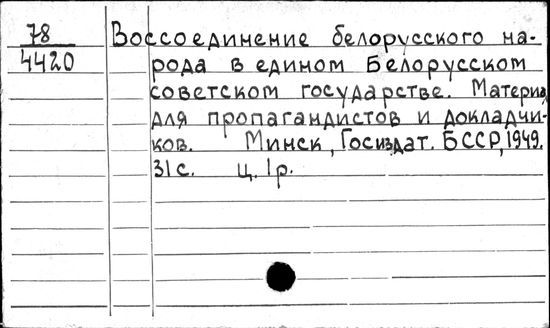 78
4420
Воссоединение белорусского на-
рода в едином Белорусском
советском государстве. Материа
для пропагандистов и докладчи-
ков. Минск, Госиздат. БССР, 1949.
31 с. ц. 1 р.